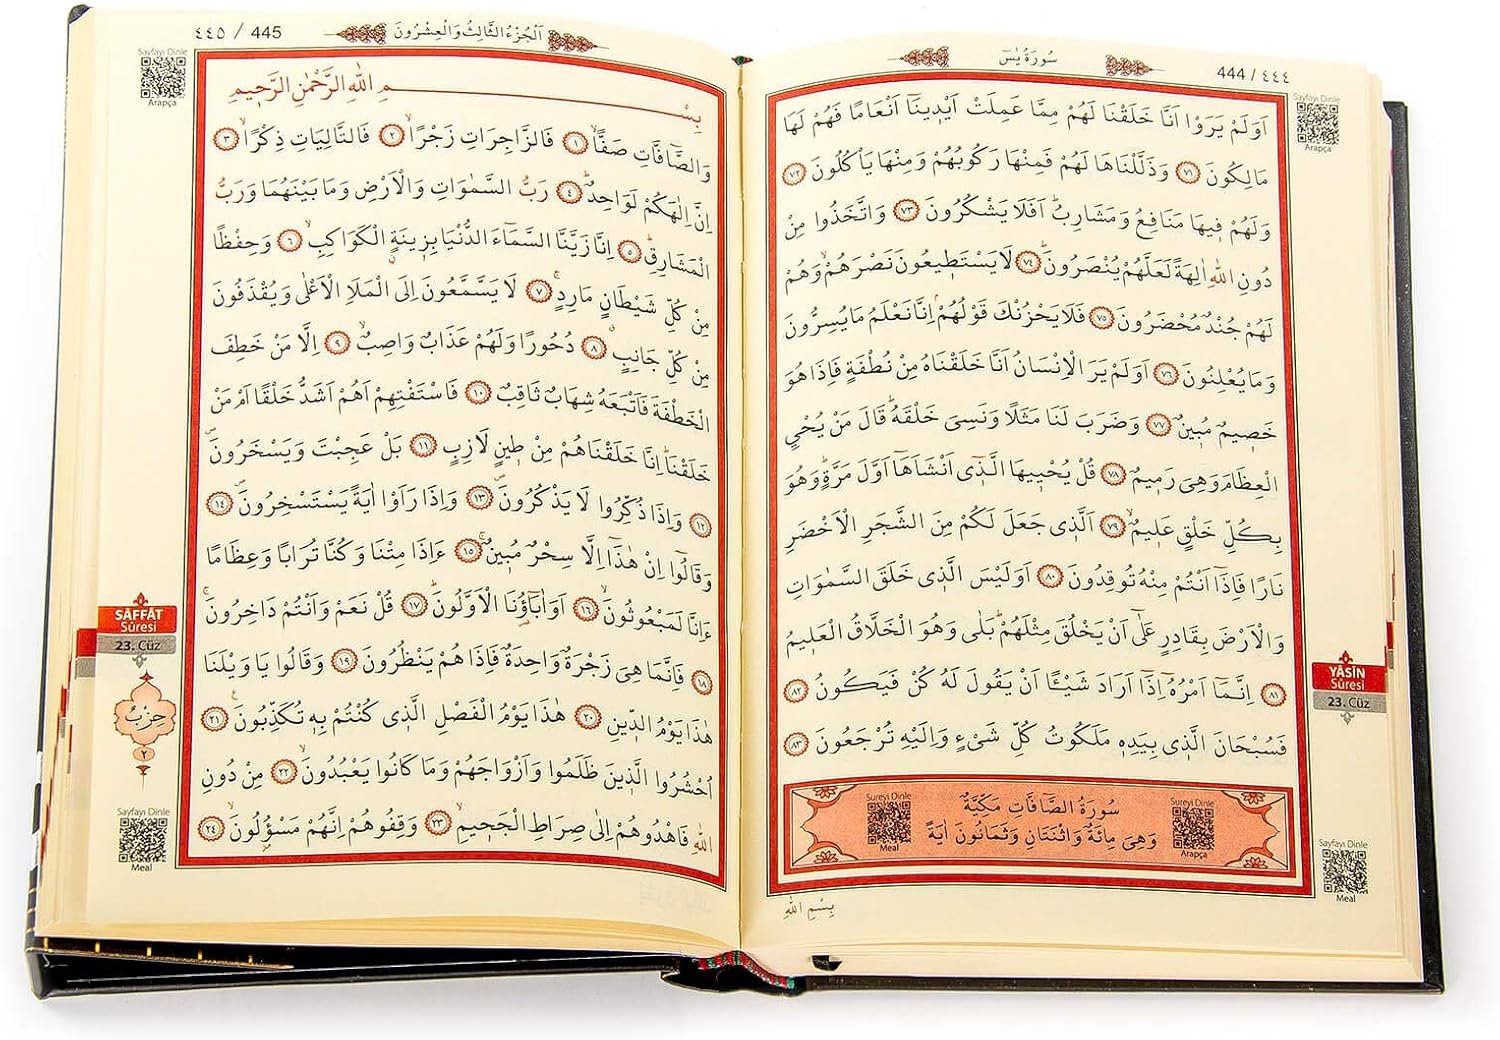 444 / ٤٤٤
سُورَةُ يٰسٓ
Sayfayı Dinle
Arapça
اَوَلَمْ يَرَوْا اَنَّا خَلَقْنَا لَهُمْ مِمَّا عَمِلَتْ اَيْدٖينَٓا اَنْعَامًا فَهُمْ لَهَا
مَالِكُونَ ﴿٧١﴾ وَذَلَّلْنَاهَا لَهُمْ فَمِنْهَا رَكُوبُهُمْ وَمِنْهَا يَأْكُلُونَ ﴿٧٢﴾
وَلَهُمْ فٖيهَا مَنَافِعُ وَمَشَارِبُؕ اَفَلَا يَشْكُرُونَ ﴿٧٣﴾ وَاتَّخَذُوا مِنْ
دُونِ اللّٰهِ اٰلِهَةً لَعَلَّهُمْ يُنْصَرُونَؕ ﴿٧٤﴾ لَا يَسْتَطٖيعُونَ نَصْرَهُمْۙ وَهُمْ
لَهُمْ جُنْدٌ مُحْضَرُونَ ﴿٧٥﴾ فَلَا يَحْزُنْكَ قَوْلُهُمْۢ اِنَّا نَعْلَمُ مَا يُسِرُّونَ
وَمَا يُعْلِنُونَ ﴿٧٦﴾ اَوَلَمْ يَرَ الْاِنْسَانُ اَنَّا خَلَقْنَاهُ مِنْ نُطْفَةٍ فَاِذَا هُوَ
خَصٖيمٌ مُبٖينٌ ﴿٧٧﴾ وَضَرَبَ لَنَا مَثَلًا وَنَسِيَ خَلْقَهُؕ قَالَ مَنْ يُحْيِ
الْعِظَامَ وَهِيَ رَمٖيمٌ ﴿٧٨﴾ قُلْ يُحْيٖيهَا الَّذٖٓى اَنْشَاَهَٓا اَوَّلَ مَرَّةٍؕ وَهُوَ
بِكُلِّ خَلْقٍ عَلٖيمٌۙ ﴿٧٩﴾ اَلَّذٖى جَعَلَ لَكُمْ مِنَ الشَّجَرِ الْاَخْضَرِ
نَارًا فَاِذَٓا اَنْتُمْ مِنْهُ تُوقِدُونَ ﴿٨٠﴾ اَوَلَيْسَ الَّذٖى خَلَقَ السَّمٰوَاتِ
وَالْاَرْضَ بِقَادِرٍ عَلٰٓى اَنْ يَخْلُقَ مِثْلَهُمْؕ بَلٰى وَهُوَ الْخَلَّاقُ الْعَلٖيمُ
﴿٨١﴾ اِنَّمَٓا اَمْرُهُٓ اِذَٓا اَرَادَ شَيْـًٔا اَنْ يَقُولَ لَهُ كُنْ فَيَكُونُ ﴿٨٢﴾
فَسُبْحَانَ الَّذٖى بِيَدِهٖ مَلَكُوتُ كُلِّ شَيْءٍ وَاِلَيْهِ تُرْجَعُونَ ﴿٨٣﴾
YÂSÎN
Sûresi
23. Cüz
Sureyi Dinle
Arapça
سُورَةُ الصَّٓافَّاتِ مَكِّيَّةٌ
وَهِيَ مِائَةٌ وَاثْنَتَانِ وَثَمَانُونَ اٰيَةً
Sureyi Dinle
Meal
Sayfayı Dinle
Meal
بِسْمِ اللّٰهِ
اَلْجُزْءُ الثَّالِثُ وَالْعِشْرُونَ
٤٤٥ / 445
Sayfayı Dinle
Arapça
بِسْمِ اللّٰهِ الرَّحْمٰنِ الرَّحٖيمِ
وَالصَّٓافَّاتِ صَفًّاۙ ﴿١﴾ فَالزَّاجِرَاتِ زَجْرًاۙ ﴿٢﴾ فَالتَّالِيَاتِ ذِكْرًاۙ ﴿٣﴾
اِنَّ اِلٰهَكُمْ لَوَاحِدٌؕ ﴿٤﴾ رَبُّ السَّمٰوَاتِ وَالْاَرْضِ وَمَا بَيْنَهُمَا وَرَبُّ
الْمَشَارِقِؕ ﴿٥﴾ اِنَّا زَيَّنَّا السَّمَٓاءَ الدُّنْيَا بِزٖينَةٍۨ الْكَوَاكِبِۙ ﴿٦﴾ وَحِفْظًا
مِنْ كُلِّ شَيْطَانٍ مَارِدٍۚ ﴿٧﴾ لَا يَسَّمَّعُونَ اِلَى الْمَلَاِ الْاَعْلٰى وَيُقْذَفُونَ
مِنْ كُلِّ جَانِبٍۗ ﴿٨﴾ دُحُورًا وَلَهُمْ عَذَابٌ وَاصِبٌۙ ﴿٩﴾ اِلَّا مَنْ خَطِفَ
الْخَطْفَةَ فَاَتْبَعَهُ شِهَابٌ ثَاقِبٌ ﴿١٠﴾ فَاسْتَفْتِهِمْ اَهُمْ اَشَدُّ خَلْقًا اَمْ مَنْ
خَلَقْنَاؕ اِنَّا خَلَقْنَاهُمْ مِنْ طٖينٍ لَازِبٍ ﴿١١﴾ بَلْ عَجِبْتَ وَيَسْخَرُونَࣕ
﴿١٢﴾ وَاِذَا ذُكِّرُوا لَا يَذْكُرُونَࣕ ﴿١٣﴾ وَاِذَا رَاَوْا اٰيَةً يَسْتَسْخِرُونَࣕ ﴿١٤﴾
وَقَالُٓوا اِنْ هٰذَٓا اِلَّا سِحْرٌ مُبٖينٌۚ ﴿١٥﴾ ءَاِذَا مِتْنَا وَكُنَّا تُرَابًا وَعِظَامًا
ءَاِنَّا لَمَبْعُوثُونَۙ ﴿١٦﴾ اَوَاٰبَٓاؤُنَا الْاَوَّلُونَؕ ﴿١٧﴾ قُلْ نَعَمْ وَاَنْتُمْ دَاخِرُونَۚ
﴿١٨﴾ فَاِنَّمَا هِيَ زَجْرَةٌ وَاحِدَةٌ فَاِذَا هُمْ يَنْظُرُونَ ﴿١٩﴾ وَقَالُوا يَا وَيْلَنَا
هٰذَا يَوْمُ الدّٖينِ ﴿٢٠﴾ هٰذَا يَوْمُ الْفَصْلِ الَّذٖى كُنْتُمْ بِهٖ تُكَذِّبُونَࣖ ﴿٢١﴾
اُحْشُرُوا الَّذٖينَ ظَلَمُوا وَاَزْوَاجَهُمْ وَمَا كَانُوا يَعْبُدُونَۙ ﴿٢٢﴾ مِنْ دُونِ
اللّٰهِ فَاهْدُوهُمْ اِلٰى صِرَاطِ الْجَحٖيمِۙ ﴿٢٣﴾ وَقِفُوهُمْ اِنَّهُمْ مَسْؤُلُونَۙ ﴿٢٤﴾
SÂFFÂT
Sûresi
23. Cüz
حِزْبٌ
٢
Sayfayı Dinle
Meal